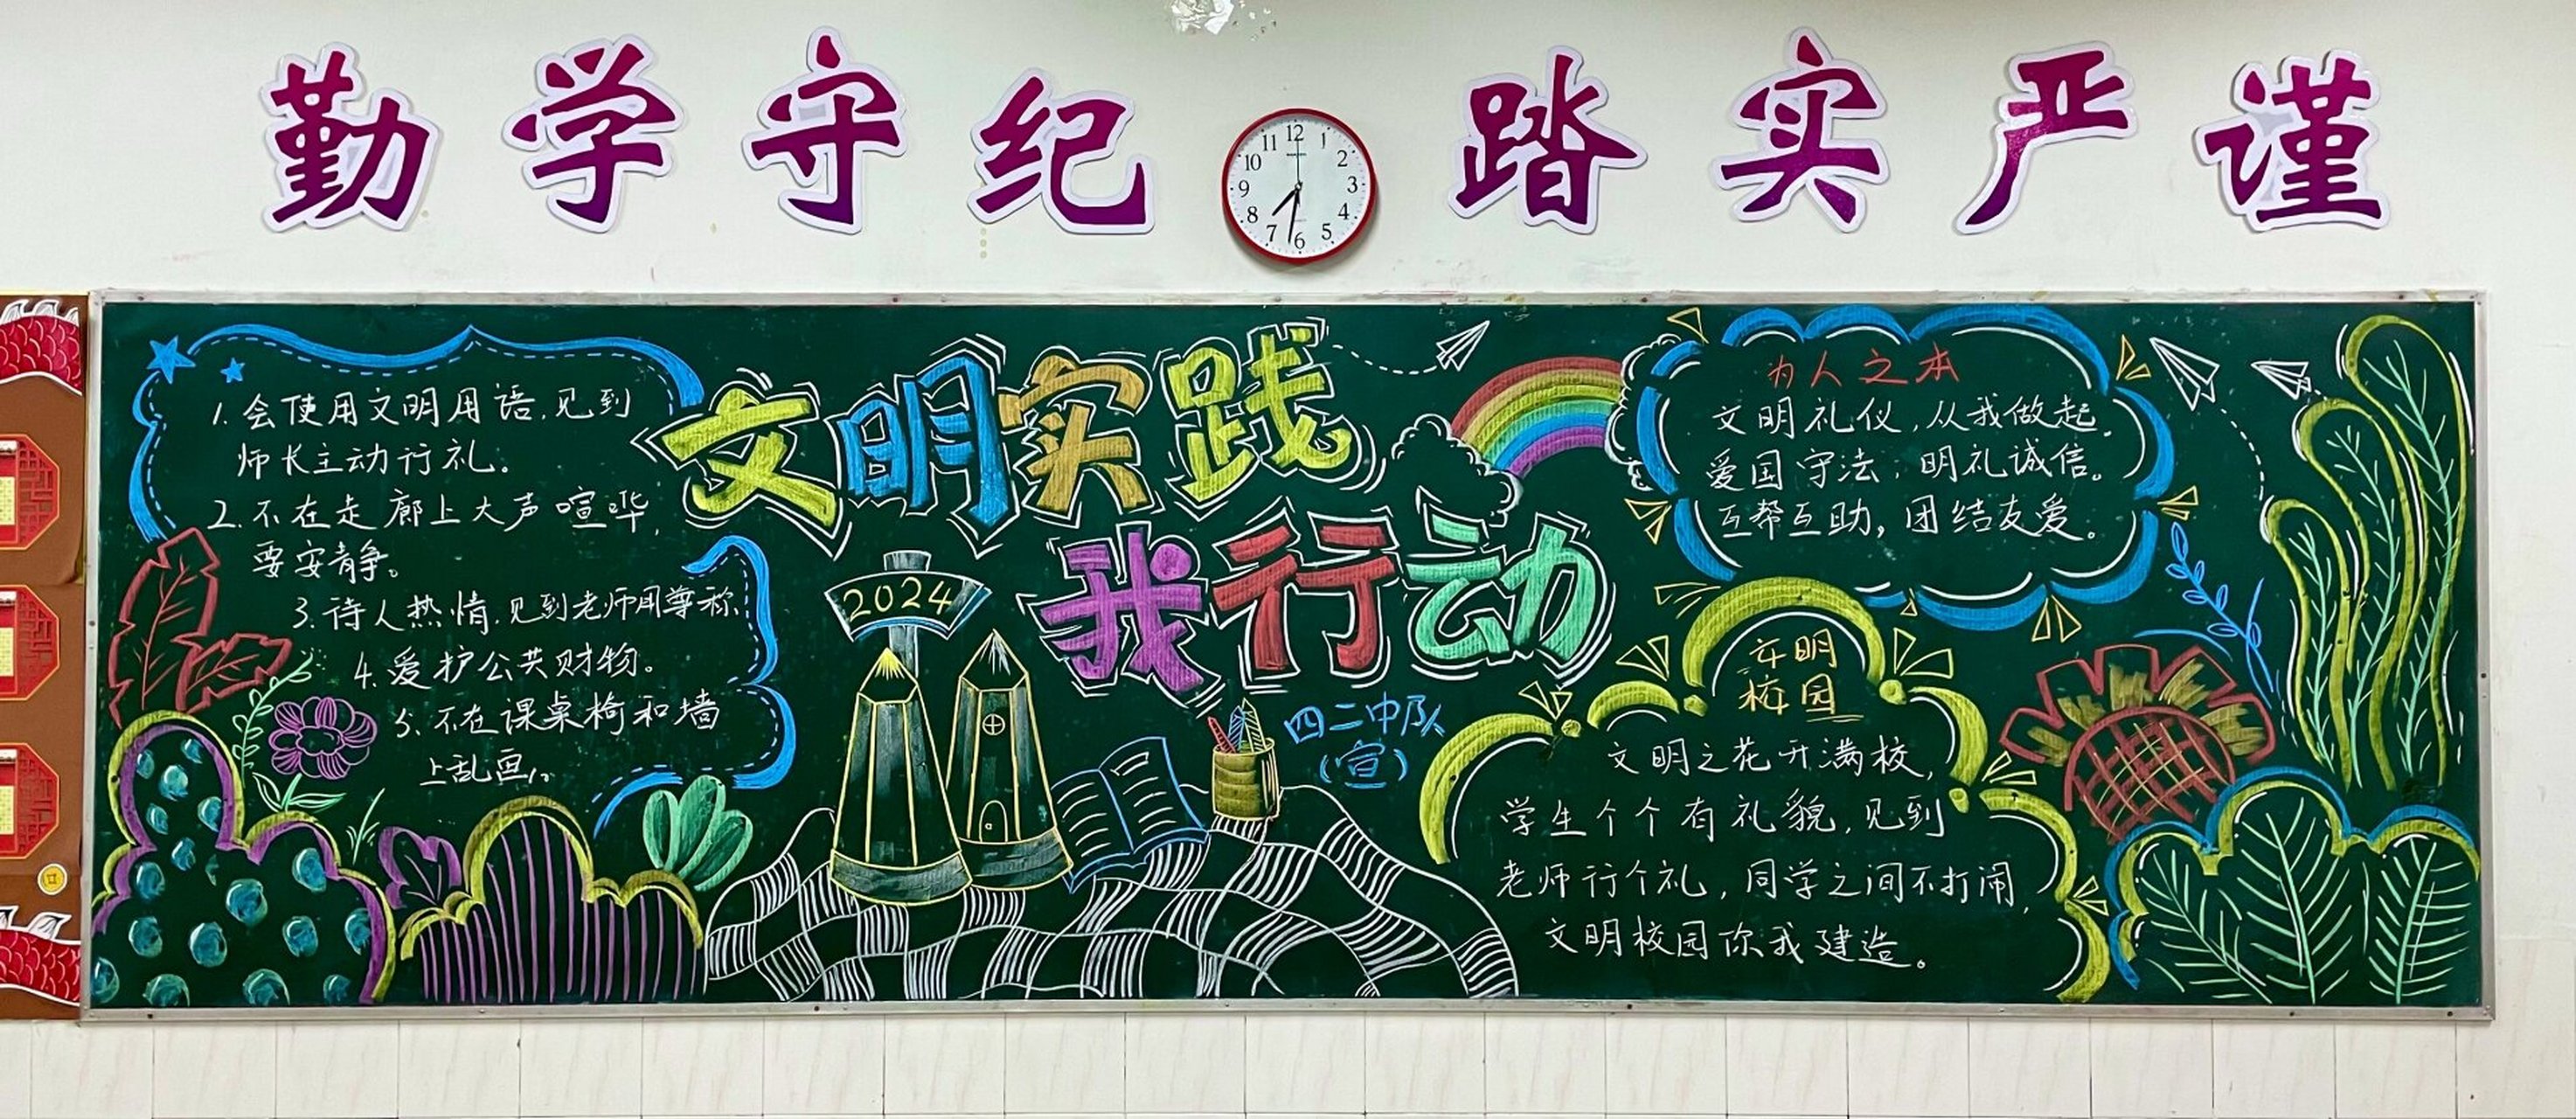 勤学守纪 踏实严谨
12
1
2
3
4
5
6
7
8
9
10
11
1. 会使用文明用语，见到
师长主动行礼。
2. 不在走廊上大声喧哗，
要安静。
3. 待人热情，见到老师用尊称
4. 爱护公共财物。
5. 不在课桌椅和墙
上乱画。
文明实践
我行动
2024
四二中队
（宣）
为人之本
文明礼仪，从我做起，
爱国守法，明礼诚信。
互帮互助，团结友爱。
文明
校园
文明之花开满校，
学生个个有礼貌，见到
老师行个礼，同学之间不打闹，
文明校园你我建造。